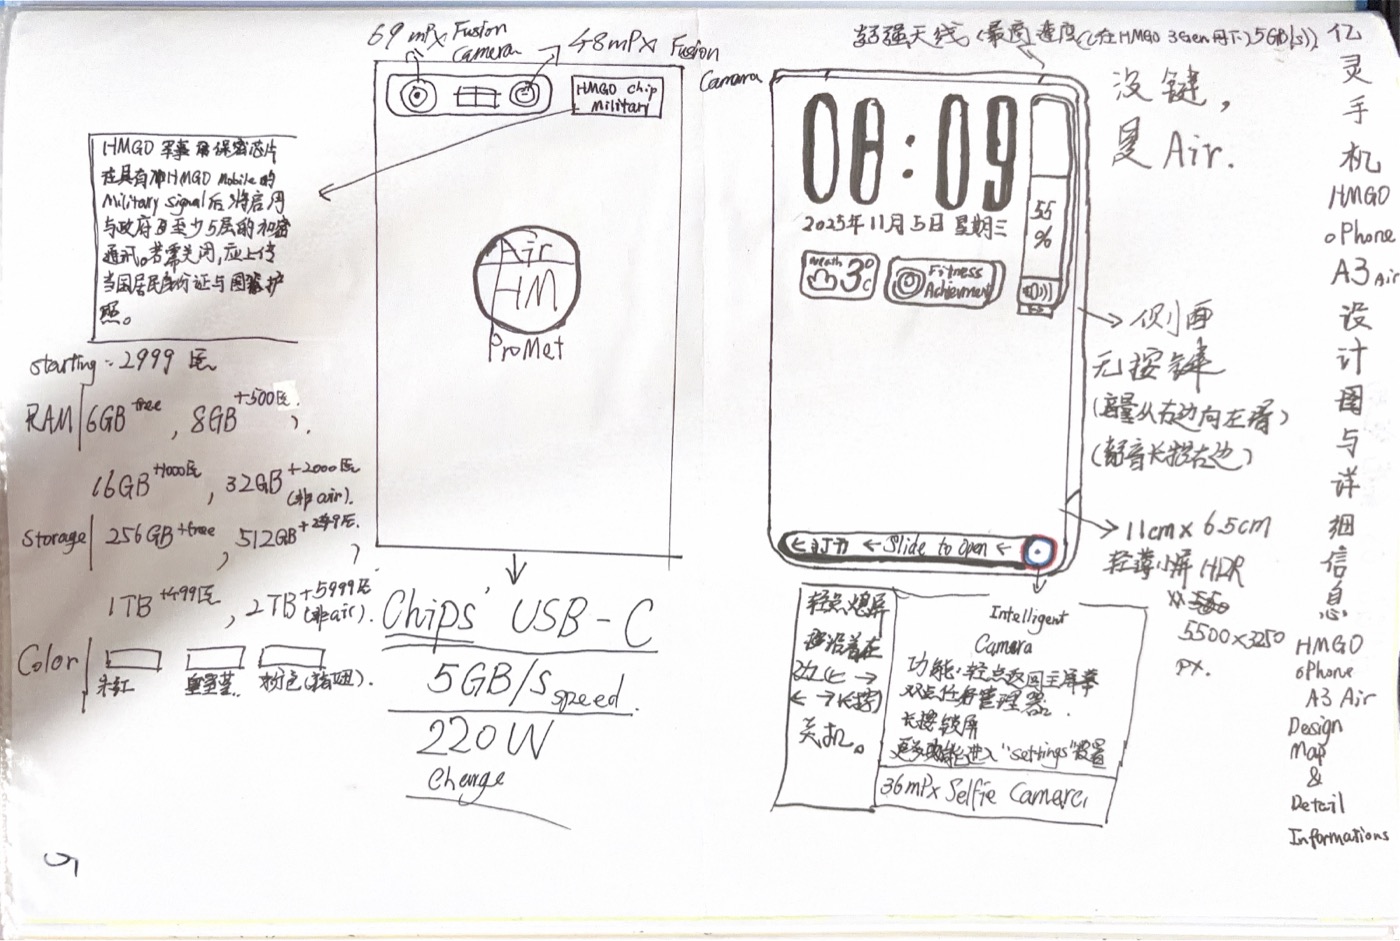 69 mPx Fusion
Camera
48mPx Fusion
Camera
HMGO chip
Military
HMGO 军事用保密芯片
在具有HMGO Mobile的
Military signal后将启用
与政府至少5层的加密
通讯。若需关闭,应上传
当国居民身份证与国籍护
照。
Air
HM
ProMet
starting: 2999 民
RAM 6GB free, 8GB +500民,
16GB +1000民, 32GB +2000民
(非air).
Storage 256GB +free, 512GB
1TB +499民, 2TB +5999民
(非air).
Color
朱红
粉色
Chips' USB-C
5GB/s speed
220W
Charge
5
超强天线 (最高速度(在HMGO 3Gen网下)5GB/s))
没键,
是 Air.
08:09
2025年11月5日 星期三
3°C
Fitness
Achievement
55
%
侧面
无按键
(音量从右边向左滑)
(静音长按右边)
11cm x 6.5cm
轻薄小屏 HDR
5500×3250
px.
← 打开 ← Slide to Open ←
轻点熄屏
长按
关机。
Intelligent
Camera
功能:轻点返回主屏幕
双点任务管理器.
长按锁屏
更多功能进入"settings"设置
36mPx Selfie Camera
亿
灵
手
机
HMGO
oPhone
A3 Air
设
计
图
与
详
细
信
息
HMGO
oPhone
A3 Air
Design
Map
&
Detail
Informations